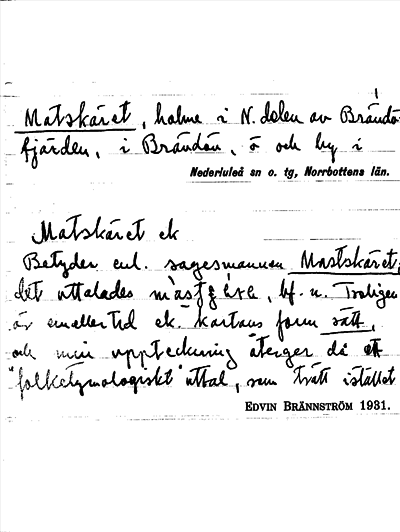 Matskäret, holme i N. delen av Brändö-
fjärden, i Brändön, ö och by i
Nederluleå sn o. tg, Norrbottens län.
Matskäret ek
Betyder enl. sagesmannen Mastskäret,
det uttalades bf. n. Troligen
är emellertid ek. kartans form rätt,
och min uppteckning återger då ett
"folketymologiskt" uttal, som trätt istället
EDVIN BRÄNNSTRÖM 1931.